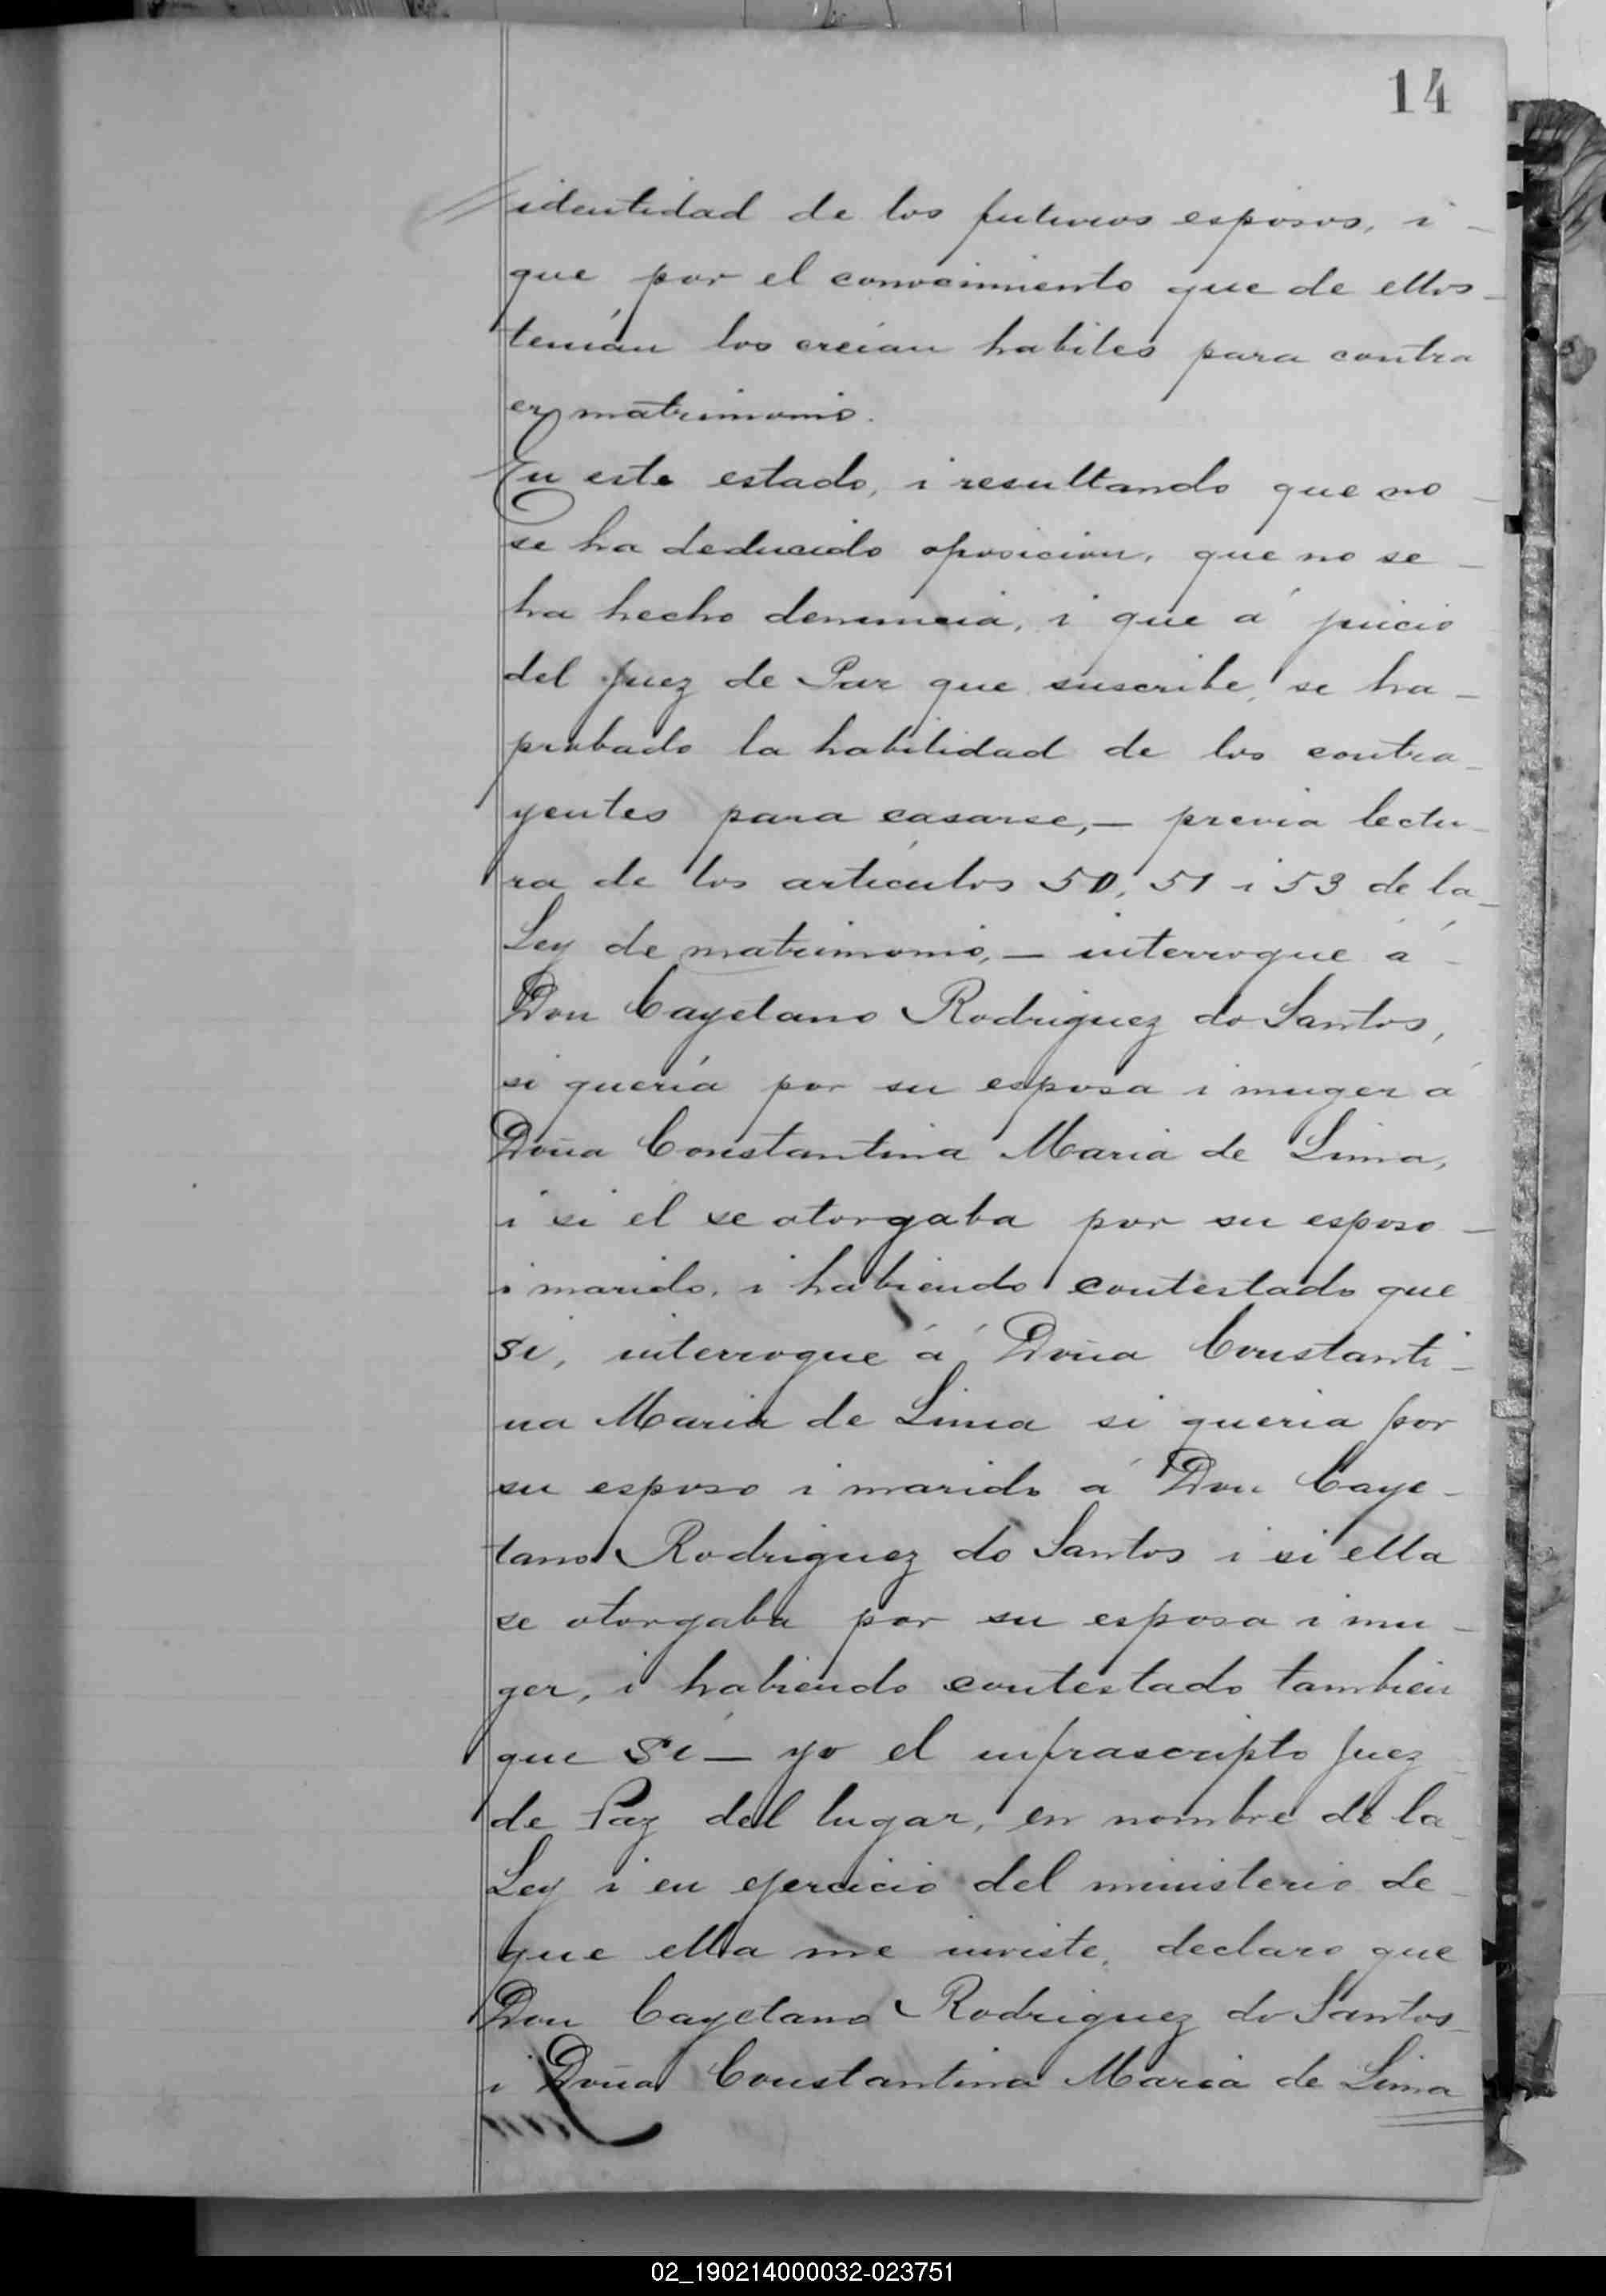 14
identidad de los futuros esposos, i -
que por el conocimiento que de ellos -
tenían los creían habiles para contra
er matrimonio.
En este estado, i resultando que no -
se ha deducido oposicion, que no se -
ha hecho denuncia, i que á juicio
del Juez de Paz que suscribe, se ha -
probado la habilidad de los contra-
yentes para casarse, — previa lectu-
ra de los artículos 50, 51 i 53 de la -
Ley de matrimonio, — interrogué á -
Don Cayetano Rodriguez do Santos,
si quería por su esposa i muger á
Doña Constantina Maria de Lima,
i si él se otorgaba por su esposo -
i marido, i habiendo contestado que
si, interrogué á Doña Constanti-
na Maria de Lima si queria por
su esposo i marido á Don Caye-
tano Rodriguez do Santos i si ella
se otorgaba por su esposa i mu-
ger, i habiendo contestado tambien
que Sí — yo el infrascripto Juez
de Paz del lugar, en nombre de la
Ley i en ejercicio del ministerio de -
que ella me inviste, declaro que
Don Cayetano Rodriguez do Santos -
i Doña Constantina Maria de Lima
02_190214000032-023751